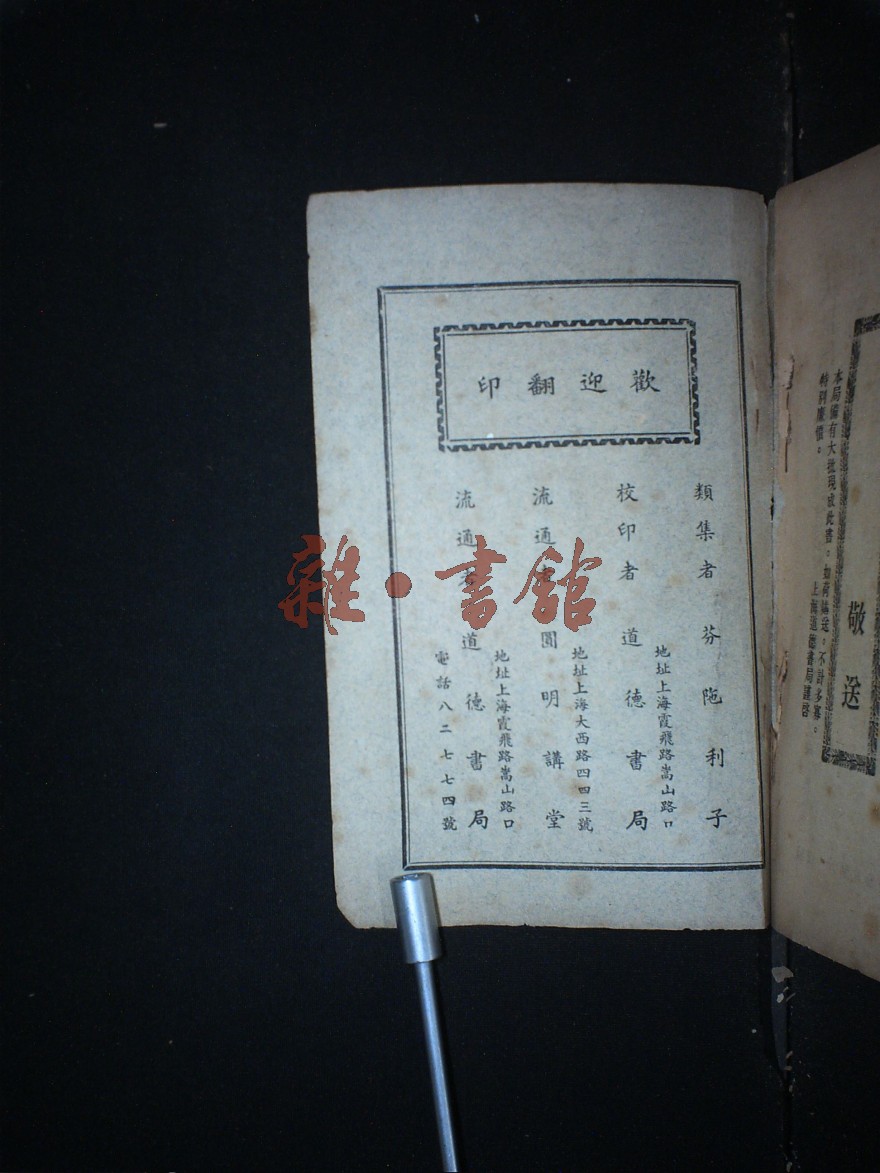 敬送
本局備有大批現成此書。如荷論送。不計多寡。
特別廉價。
上海道德書局謹啓
歡迎翻印
類集者 芬陁利子
校印者 道德書局
地址上海霞飛路嵩山路口
流通者 圓明講堂
地址上海大西路四四三號
流通者 道德書局
地址上海霞飛路嵩山路口
電話八二七七四號
雜·書館